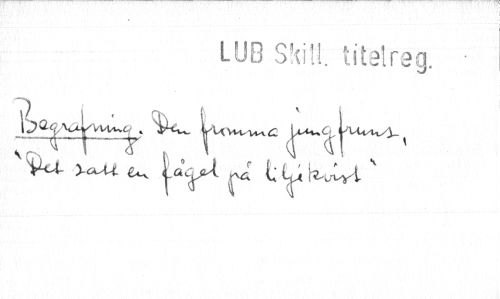 LUB Skill. titelreg.
Begrafning. Den fromma jungfruns,
"Det satt en fågel på liljékvist"